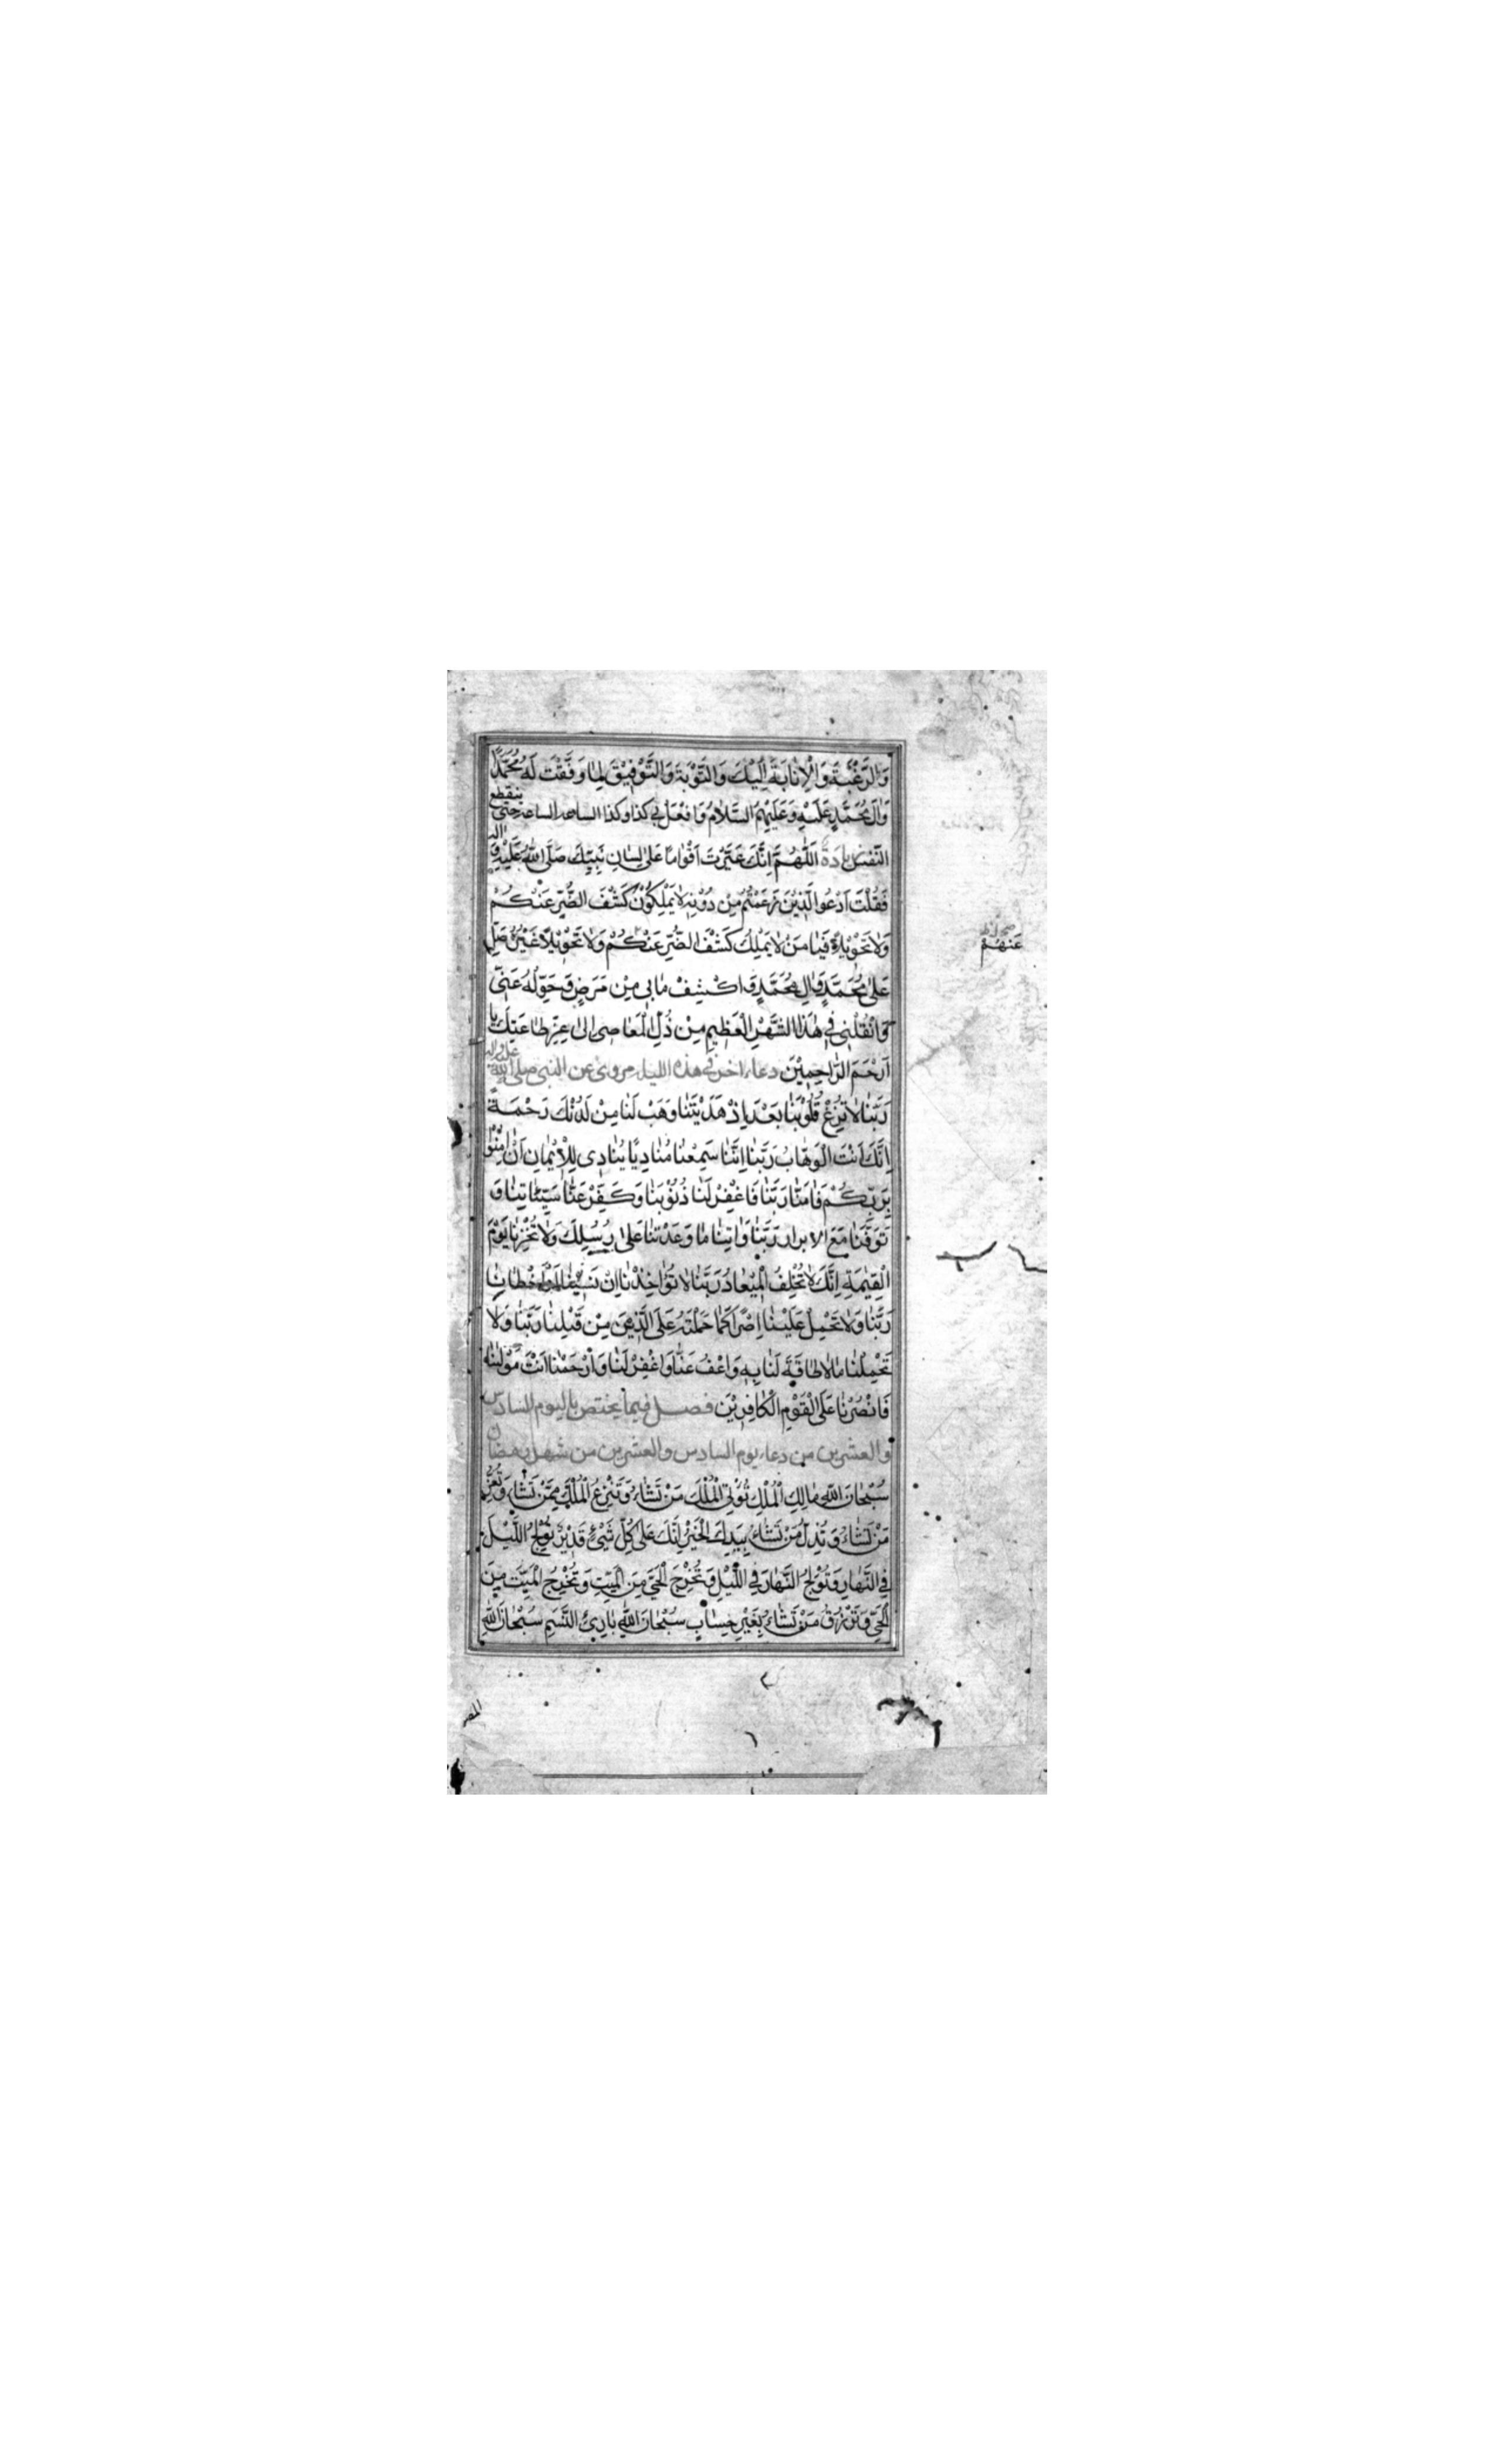 وَالرَّغْبَةَ وَالْاِنَابَةَ اِلَيْكَ وَالتَّوْبَةَ وَالتَّوْفِيْقَ لِمَا وَفَّقْتَ لَهُ مُحَمَّدًا
وَاٰلَ مُحَمَّدٍ عَلَيْهِ وَعَلَيْهِمُ السَّلَامُ وَافْعَلْ بِي كذا وكذا الساعة الساعة حتى ينقطع
النّفس زيادة اَللّٰهُمَّ اِنَّكَ عَيَّرْتَ اَقْوَامًا عَلٰى لِسَانِ نَبِيِّكَ صَلَّى اللّٰهُ عَلَيْهِ وَاله
فَقُلْتَ اُدْعُوا الَّذِيْنَ زَعَمْتُمْ مِنْ دُوْنِهِ لَا يَمْلِكُوْنَ كَشْفَ الضُّرِّ عَنْكُمْ
وَلَا تَحْوِيْلًا فَيَا مَنْ لَا يَمْلِكُ كَشْفَ الضُّرِّ عَنْكُمْ وَلَا تَحْوِيْلًا غَيْرُهُ صَلِّ
عَنْهُمْ
عَلٰى مُحَمَّدٍ وَاٰلِ مُحَمَّدٍ وَاكْشِفْ مَا بِي مِنْ مَرَضٍ وَحَوِّلْهُ عَنِّي
وَانْقُلْنِي فِي هٰذَا الشَّهْرِ الْعَظِيمِ مِنْ ذُلِّ الْمَعَاصِي اِلٰى عِزِّ طَاعَتِكَ يَا
اَرْحَمَ الرَّاحِمِيْنَ دعاء اخر في هذه الليلة مروى عن النبي صلى الله عليه واله
رَبَّنَا لَا تُزِغْ قُلُوْبَنَا بَعْدَ اِذْ هَدَيْتَنَا وَهَبْ لَنَا مِنْ لَدُنْكَ رَحْمَةً
اِنَّكَ اَنْتَ الْوَهَّابُ رَبَّنَا اِنَّنَا سَمِعْنَا مُنَادِيًا يُنَادِي لِلْاِيْمَانِ اَنْ اٰمِنُوْا
بِرَبِّكُمْ فَاٰمَنَّا رَبَّنَا فَاغْفِرْ لَنَا ذُنُوْبَنَا وَكَفِّرْ عَنَّا سَيِّئَاتِنَا وَ
تَوَفَّنَا مَعَ الابرار رَبَّنَا وَاٰتِنَا مَا وَعَدْتَنَا عَلٰى رُسُلِكَ وَلَا تُخْزِنَا يَوْمَ
الْقِيٰمَةِ اِنَّكَ لَا تُخْلِفُ الْمِيْعَادَ رَبَّنَا لَا تُؤَاخِذْنَا اِنْ نَسِيْنَا اَوْ اَخْطَأْنَا
رَبَّنَا وَلَا تَحْمِلْ عَلَيْنَا اِصْرًا كَمَا حَمَلْتَهُ عَلَى الَّذِيْنَ مِنْ قَبْلِنَا رَبَّنَا وَلَا
تُحَمِّلْنَا مَا لَا طَاقَةَ لَنَا بِهِ وَاعْفُ عَنَّا وَاغْفِرْ لَنَا وَارْحَمْنَا اَنْتَ مَوْلٰينَا
فَانْصُرْنَا عَلَى الْقَوْمِ الْكَافِرِيْنَ فصل فيما يختص باليوم السادس
والعشرين من دعاء يوم السادس والعشرين من شهر رمضان
سُبْحَانَ اللّٰهِ مَالِكِ الْمُلْكِ تُؤْتِي الْمُلْكَ مَنْ تَشَاءُ وَتَنْزِعُ الْمُلْكَ مِمَّنْ تَشَاءُ وَتُعِزُّ
مَنْ تَشَاءُ وَتُذِلُّ مَنْ تَشَاءُ بِيَدِكَ الْخَيْرُ اِنَّكَ عَلٰى كُلِّ شَيْءٍ قَدِيْرٌ تُوْلِجُ اللَّيْلَ
فِي النَّهَارِ وَتُوْلِجُ النَّهَارَ فِي اللَّيْلِ وَتُخْرِجُ الْحَيَّ مِنَ الْمَيِّتِ وَتُخْرِجُ الْمَيِّتَ مِنَ
الْحَيِّ وَتَرْزُقُ مَنْ تَشَاءُ بِغَيْرِ حِسَابٍ سُبْحَانَ اللّٰهِ بَارِئِ النَّسَمِ سُبْحَانَ اللّٰهِ
المصور